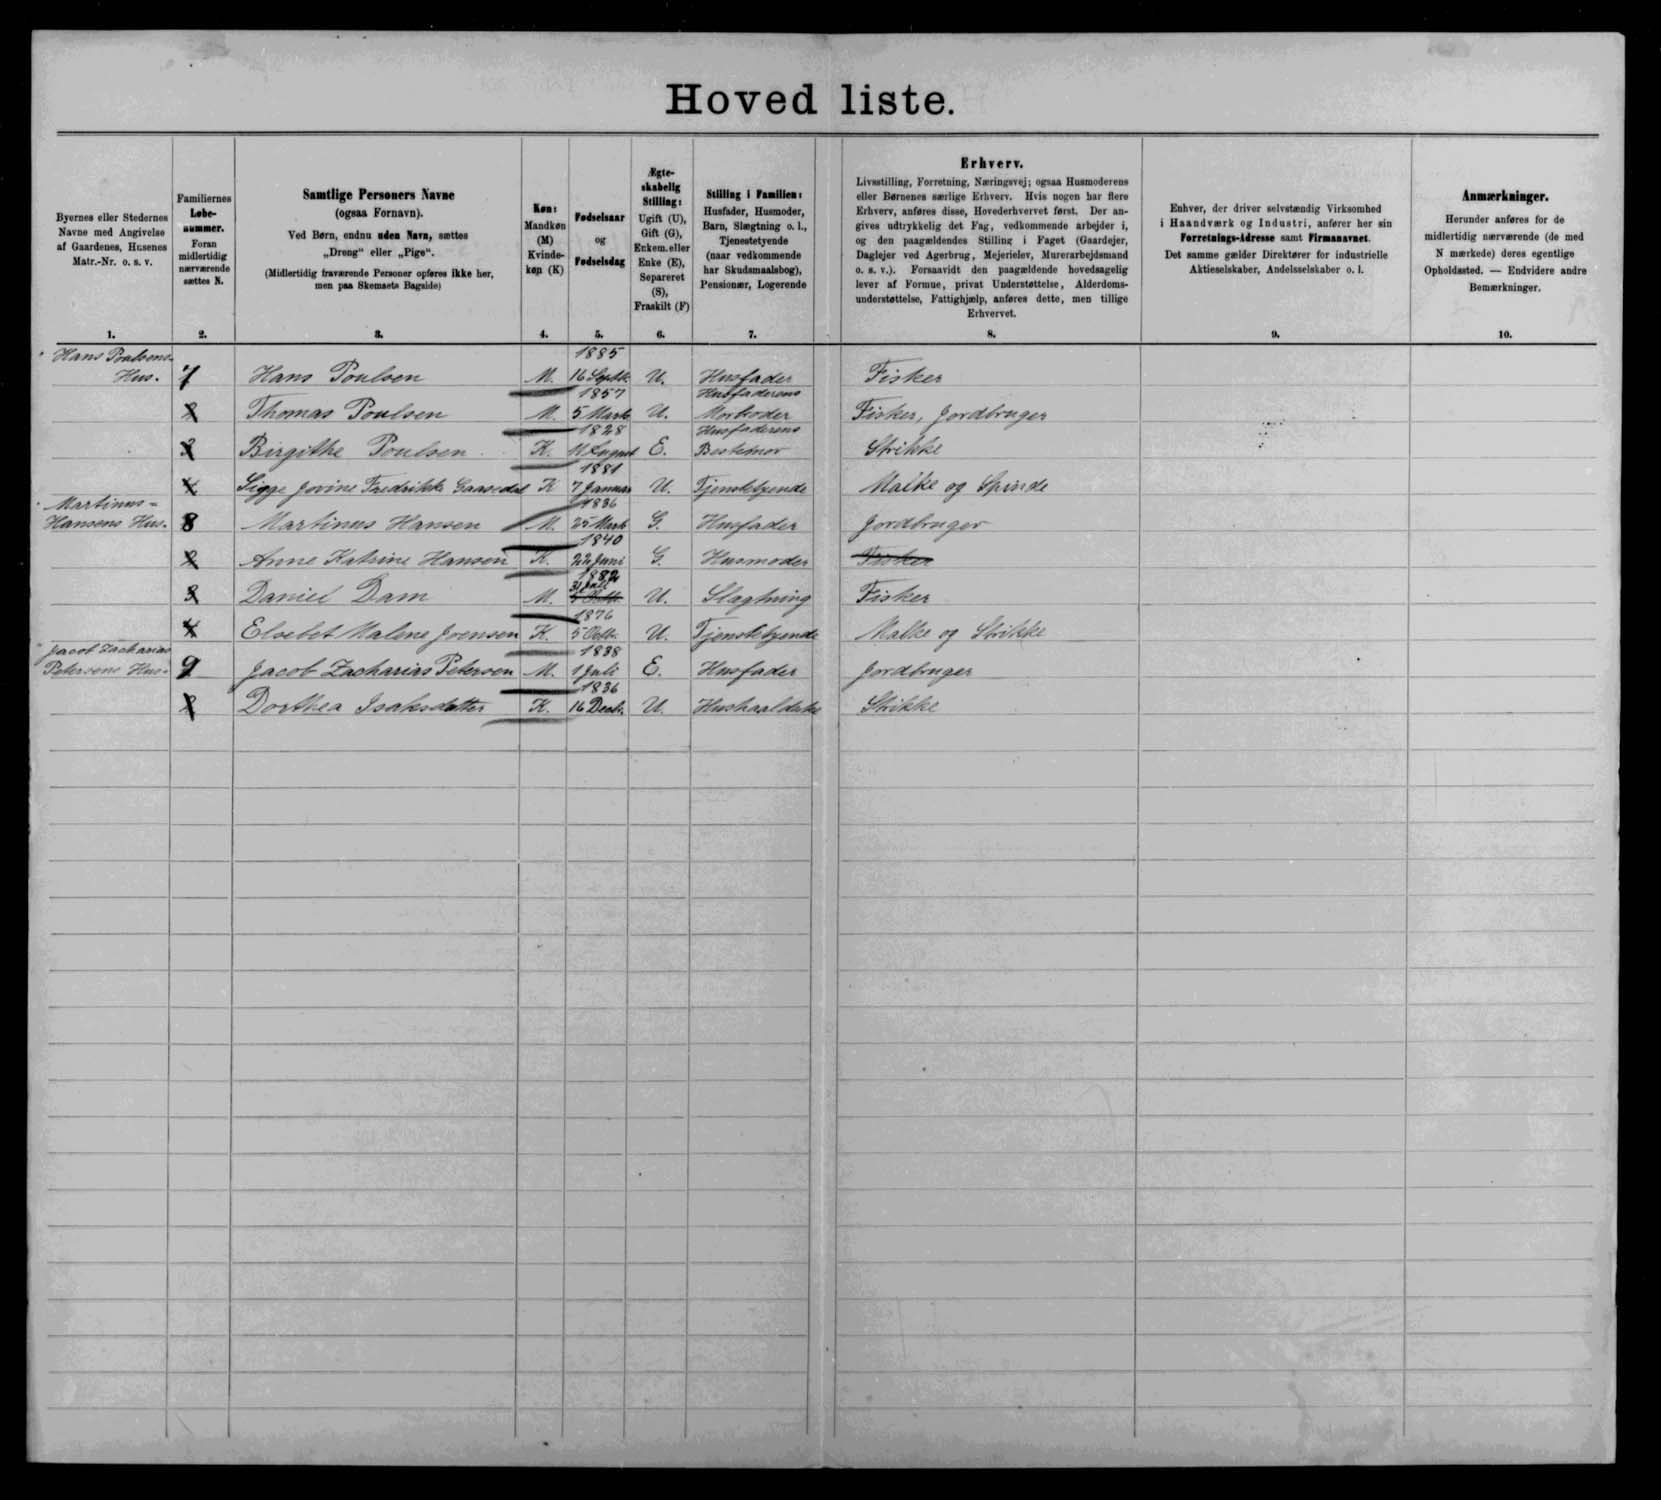 Hovedliste.
Byernes eller Stedernes
Navne med Angivelse
af Gaardenes, Husenes
Matr.-Nr. o. s. v.
1.
Familiernes
Løbe-
nummer.
Foran
midlertidig
nærværende
sættes N.
2.
Samtlige Personers Navne
(ogsaa Fornavn).
Ved Børn, endnu uden Navn, sættes
„Dreng“ eller „Pige“.
(Midlertidig fraværende Personer opføres ikke her,
men paa Skemaets Bagside)
3.
Køn:
Mandkøn
(M)
Kvinde-
køn (K)
4.
Fødselsaar
og
Fødselsdag
5.
Ægte-
skabelig
Stilling:
Ugift (U),
Gift (G),
Enkem. eller
Enke (E),
Separeret
(S),
Fraskilt (F)
6.
Stilling i Familien:
Husfader, Husmoder,
Barn, Slægtning o. l.,
Tjenestetyende
(naar vedkommende
har Skudsmaalsbog),
Pensionær, Logerende
7.
Erhverv.
Livsstilling, Forretning, Næringsvej; ogsaa Husmoderens
eller Børnenes særlige Erhverv. Hvis nogen har flere
Erhverv, anføres disse, Hovederhvervet først. Der an-
gives udtrykkelig det Fag, vedkommende arbejder i,
og den paagældendes Stilling i Faget (Gaardejer,
Daglejer ved Agerbrug, Mejerielev, Murerarbejdsmand
o. s. v.). Forsaavidt den paagældende hovedsagelig
lever af Formue, privat Understøttelse, Alderdoms-
understøttelse, Fattighjælp, anføres dette, men tillige
Erhvervet.
8.
Enhver, der driver selvstændig Virksomhed
i Haandværk og Industri, anfører her sin
Forretnings-Adresse samt Firmanavnet.
Det samme gælder Direktører for industrielle
Aktieselskaber, Andelsselskaber o. l.
9.
Anmærkninger.
Herunder anføres for de
midlertidig nærværende (de med
N mærkede) deres egentlige
Opholdssted. — Endvidere andre
Bemærkninger.
10.
Hans Poulsens
Hus. 7 Hans Poulsen M. 1885 16 Septb. U. Husfader Fisker
2 Thomas Poulsen M. 1857 5 Marts U. Husfaderens Morbroder Fisker, Jordbruger
3 Birgithe Poulsen K. 1828 11 August E. Husfaderens Bestemor Strikke
4 Sigge Jovine Fredrikke Gaasedal K 1881 7 Januar U. Tjenstetyende Malke og Spinde
Martinus-
Hansens Hus. 8 Martinus Hansen M. 1836 25 Marts G. Husfader Jordbruger
2 Anne Katrine Hansen K. 1840 22 Juni G. Husmoder Fisker
3 Daniel Dam M. 1882 31 Juli U. Slagtning Fisker
4 Elsebet Malene Joensen K. 1876 5 Octb. U. Tjenstetyende Malke og Strikke
Jacob Zacharias
Petersens Hus. 9 Jacob Zacharias Petersen M. 1838 1 Juli E. Husfader Jordbruger
2 Dorthea Isaksdatter K. 1836 16 Decb. U. Strikke